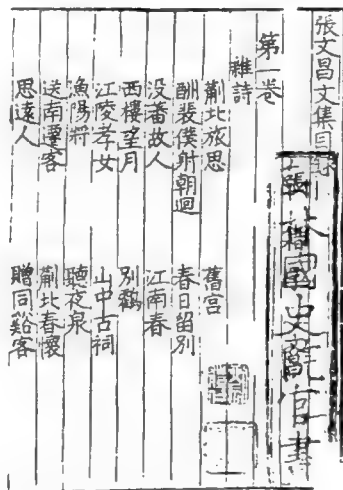 張文昌文集目錄
翰林國史院官書
第一卷
雜詩
薊北旅思 舊宮
酬裴僕射朝迴 春日留別
没蕃故人 江南春
西樓望月 別鶴
江陵孝女 山中古祠
漁陽將 聽夜泉
送南遷客 薊北春懷
思遠人 贈同谿客